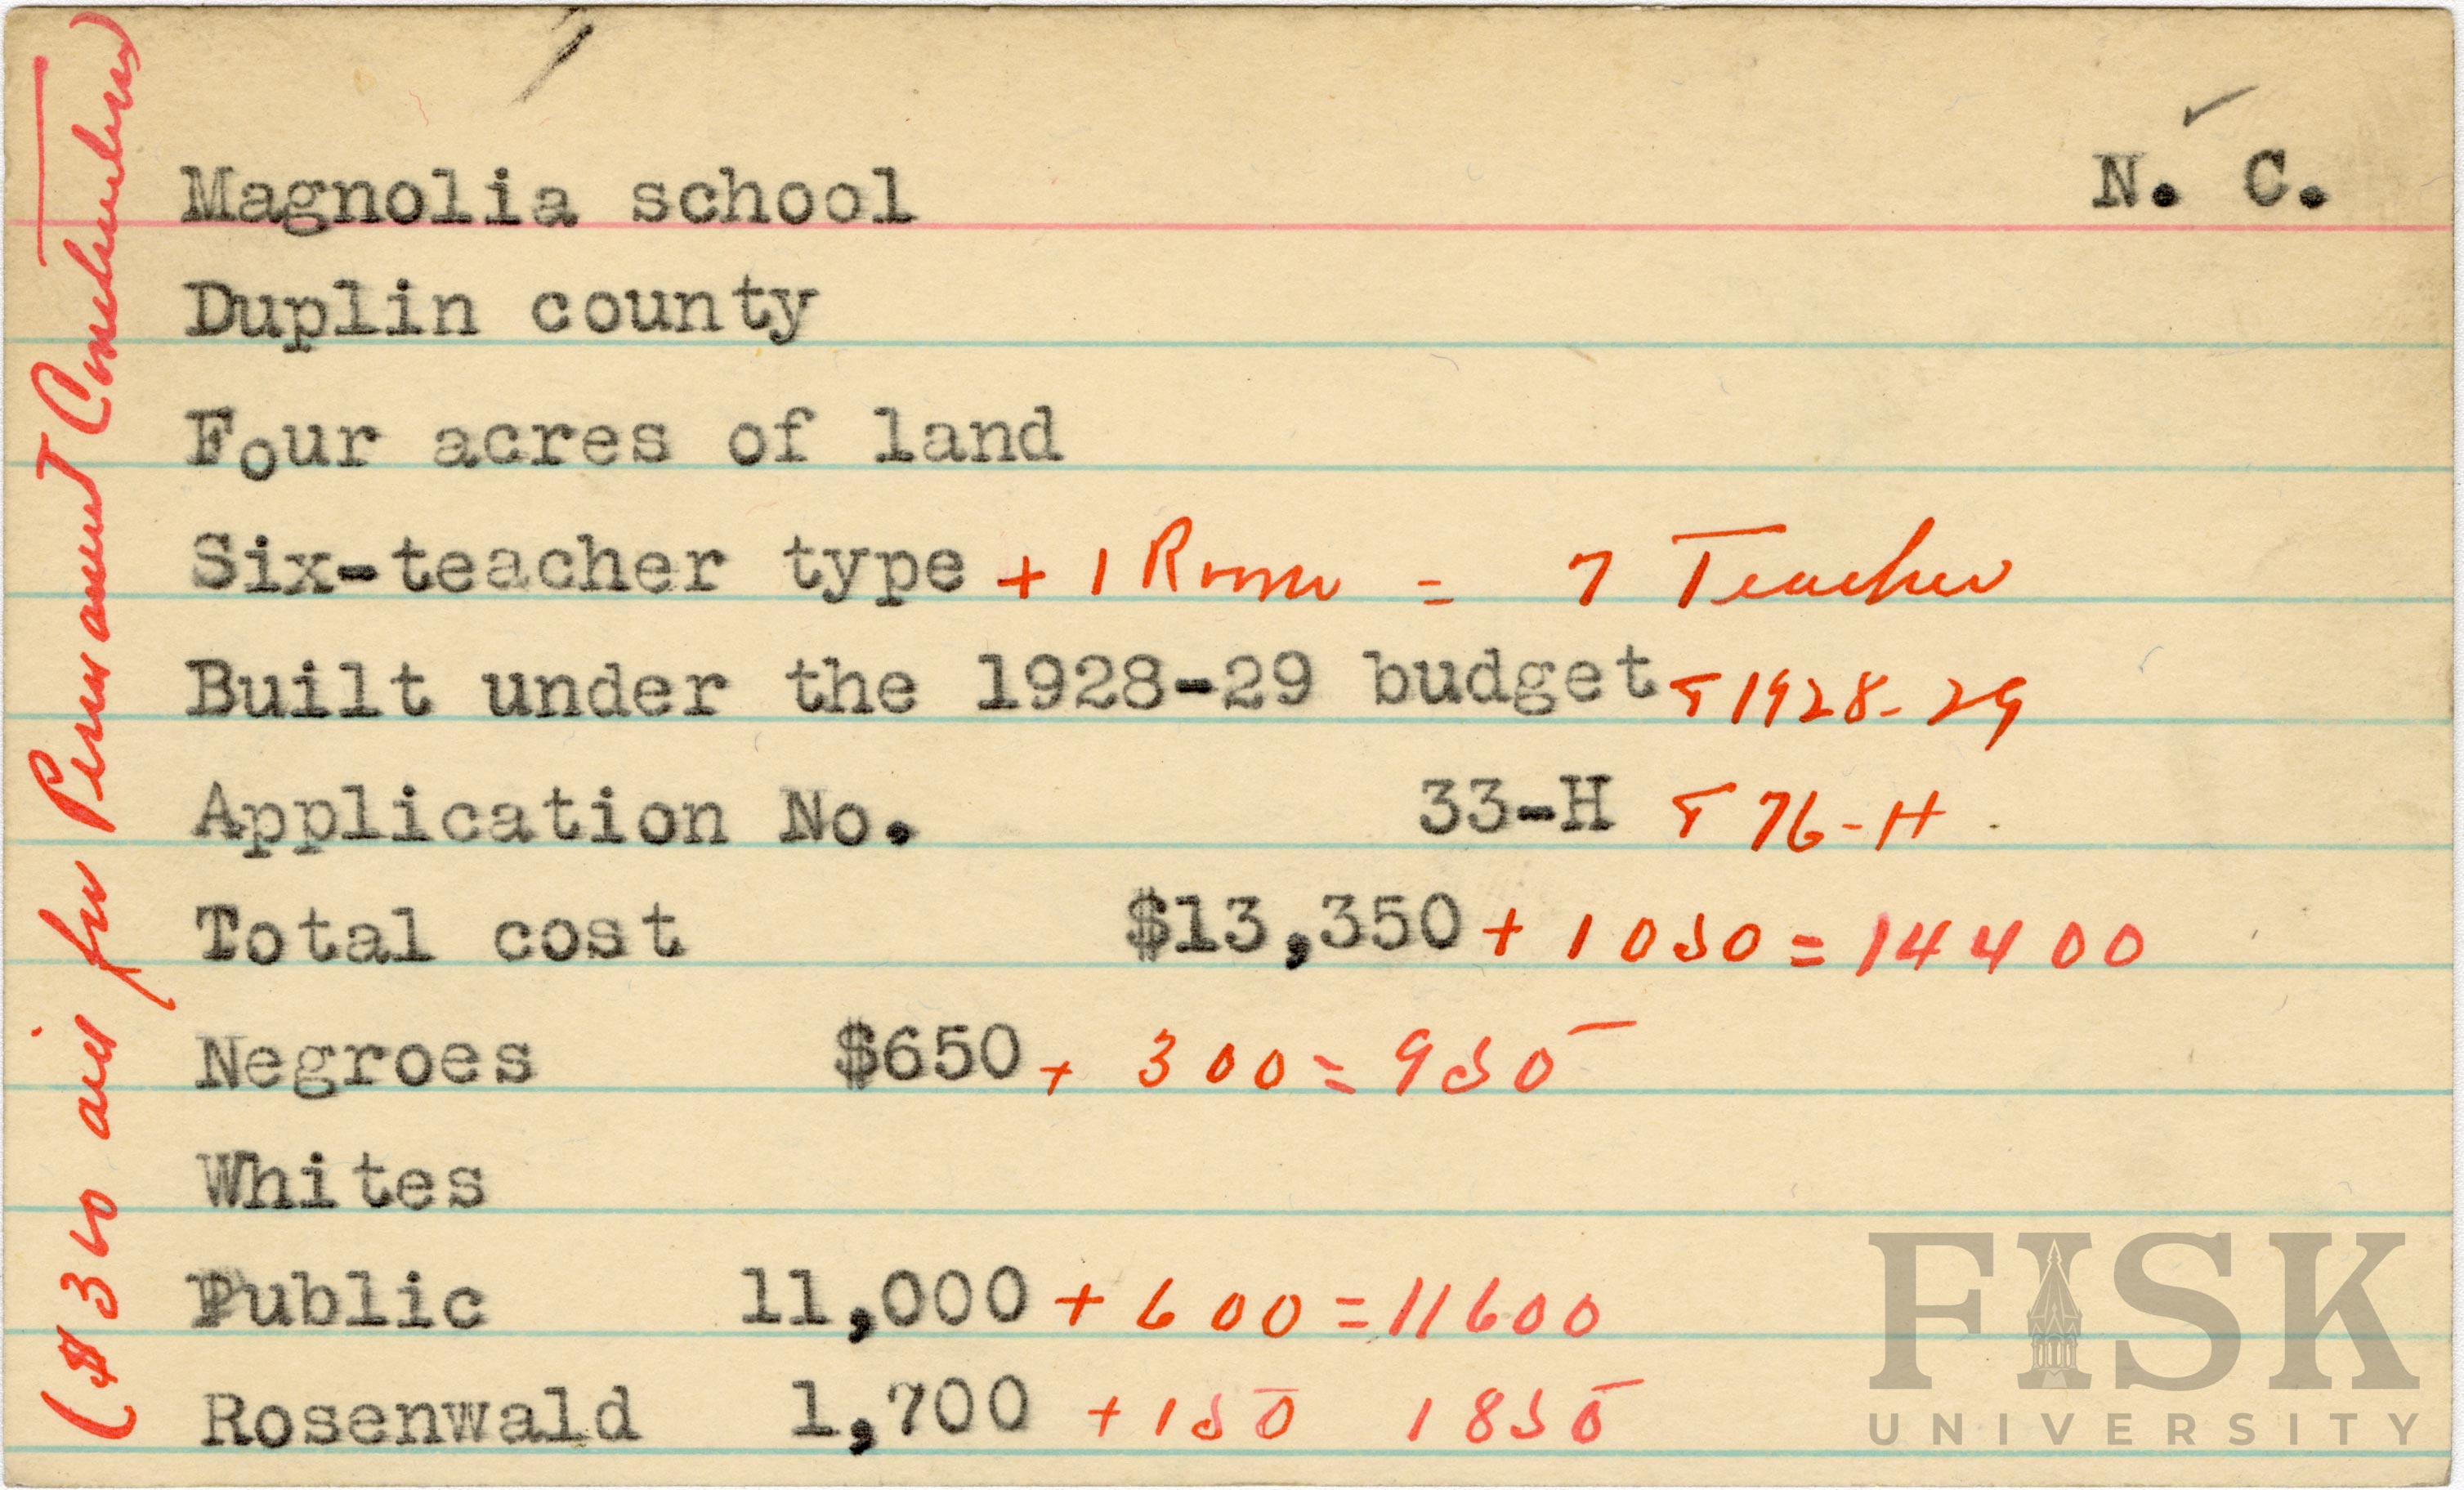 N. C.
Magnolia school
Duplin county
Four acres of land
Six-teacher type + 1 Room = 7 Teacher
Built under the 1928-29 budget & 1928-29
Application No. 33-H & 76-H
Total cost $13,350 + 1050 = 14400
Negroes $650 + 300 = 950
Whites
Public 11,000 + 600 = 11600
Rosenwald 1,700 + 150 1850
aid for Permanent Construction)
FISK
UNIVERSITY